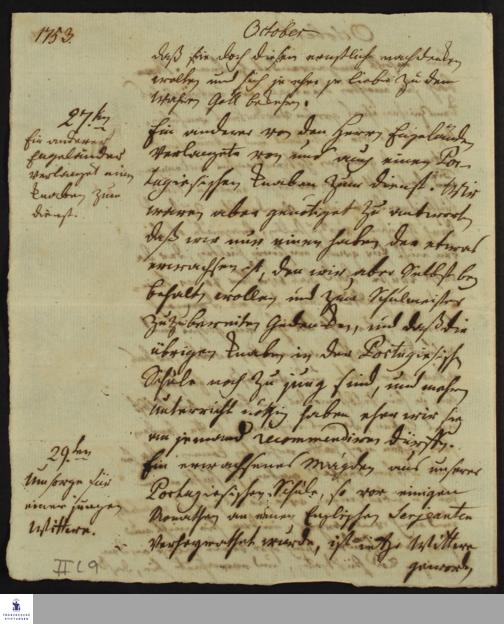 1753.
October
daß sie doch diesen ernstlich nachdenken
wolten und sich je eher je lieber zu dem
wahren Gott bekehren.
27ten
Ein anderer
Engeländer
verlanget einen
Knaben zum
dienst.
Ein anderer von den Herrn Engeländern
verlangete von uns auch einen Por-
tugiesischen Knaben zum dienst. Wir
waren aber genötiget zu antworten
daß wir nur einen haben der etwas
erwachsen ist, den wir aber selbst bey
behalten wollen und zum Schulmeister
zuzubereiten gedencken, und daß die
übrigen Knaben in der Portugiesisch
Schule noch zu jung sind, und mehrern
Unterricht nöthig haben ehe wir sie
an jemand recommendiren dürfften.
29ten
Umsorge für
einer jungen
Wittwe.
Ein erwachsenes Mägden aus unserer
Portugiesischen Schule, so vor einigen
Monathen an einen Englischen Sergeanten
verheyrathet wurde, ist ietzo Wittwe
geworden
II L 9
FRANCKESCHE
STIFTUNGEN